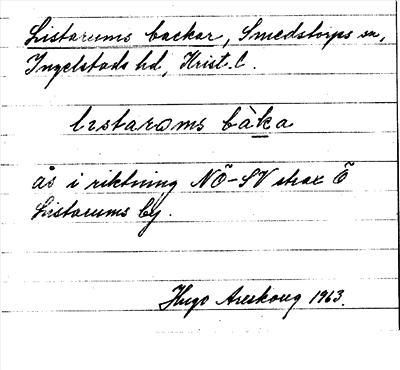 Listarums backar, Smedstorps sn,
Ingelstads hd, Krist. l.
lıstaroms bàka
ås i riktning NÖ–SV strax Ö
Listarums by.
Hugo Areskoug 1963.